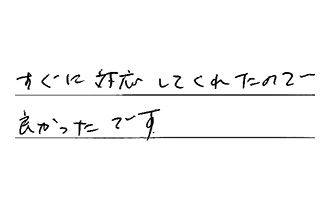 すぐに対応してくれたので
良かったです